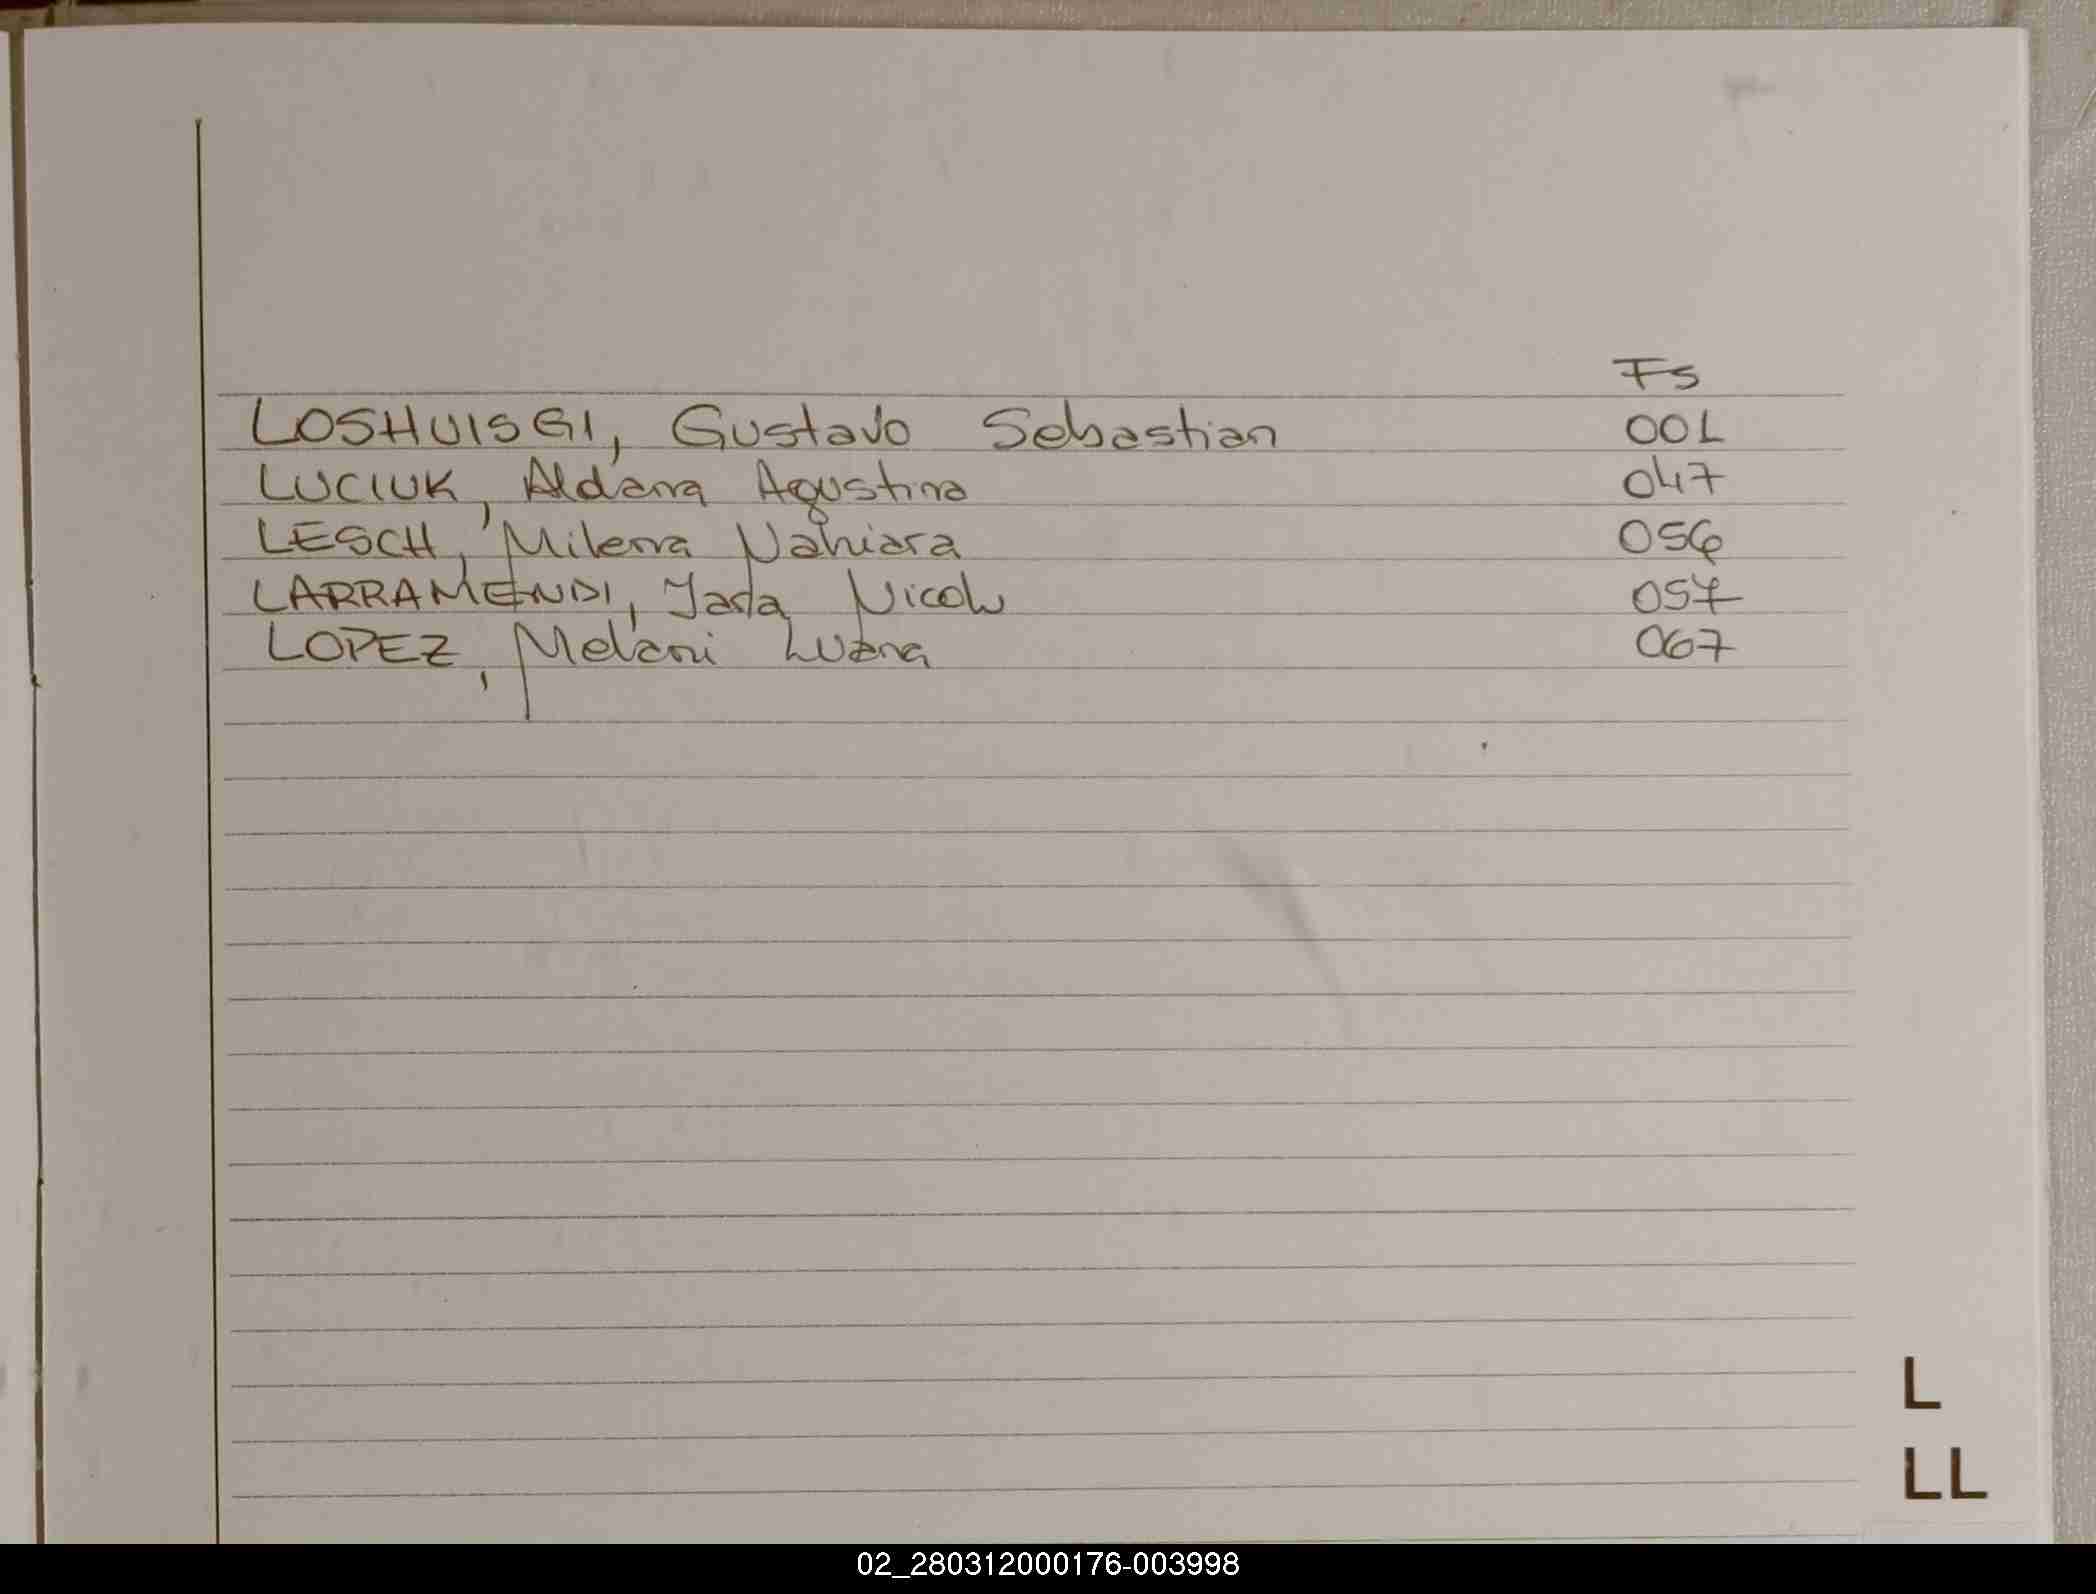 Fs
LOSHUISGI, Gustavo Sebastian 001
LUCIUK, Aldana Agustina 047
LESCH, Milena Nahiara 056
LARRAMENDI, Nicole 057
LOPEZ, Melani Luana 067
L
LL
02_280312000176-003998